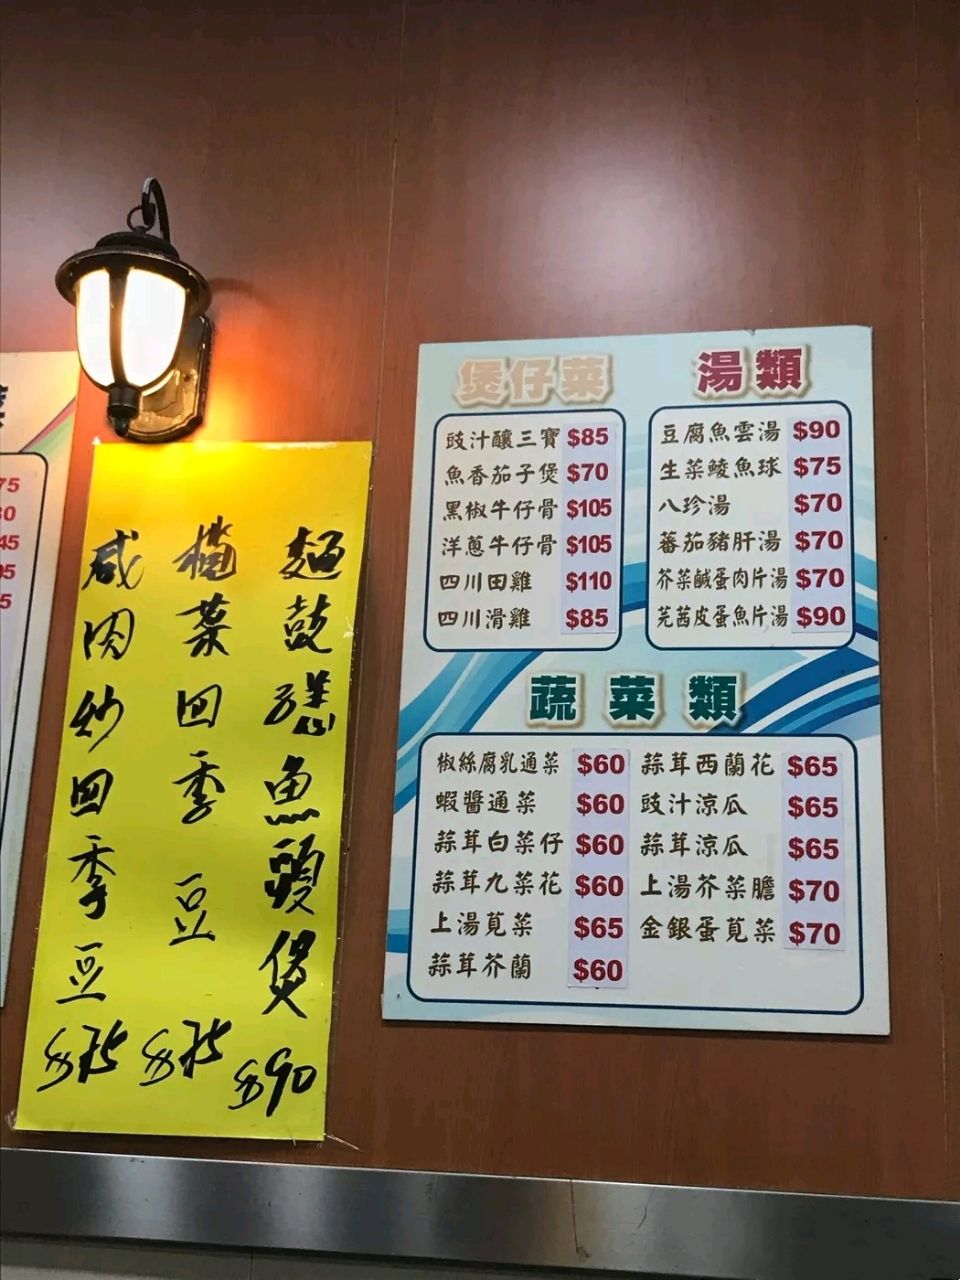 麵豉蒸魚頭煲 $90
欖菜四季豆 $75
咸肉炒四季豆 $75
煲仔菜
豉汁釀三寶 $85
魚香茄子煲 $70
黑椒牛仔骨 $105
洋蔥牛仔骨 $105
四川田雞 $110
四川滑雞 $85
湯類
豆腐魚雲湯 $90
生菜鯪魚球 $75
八珍湯 $70
蕃茄豬肝湯 $70
芥菜鹹蛋肉片湯 $70
芫茜皮蛋魚片湯 $90
蔬菜類
椒絲腐乳通菜 $60
蝦醬通菜 $60
蒜茸白菜仔 $60
蒜茸九菜花 $60
上湯莧菜 $65
蒜茸芥蘭 $60
蒜茸西蘭花 $65
豉汁涼瓜 $65
蒜茸涼瓜 $65
上湯芥菜膽 $70
金銀蛋莧菜 $70